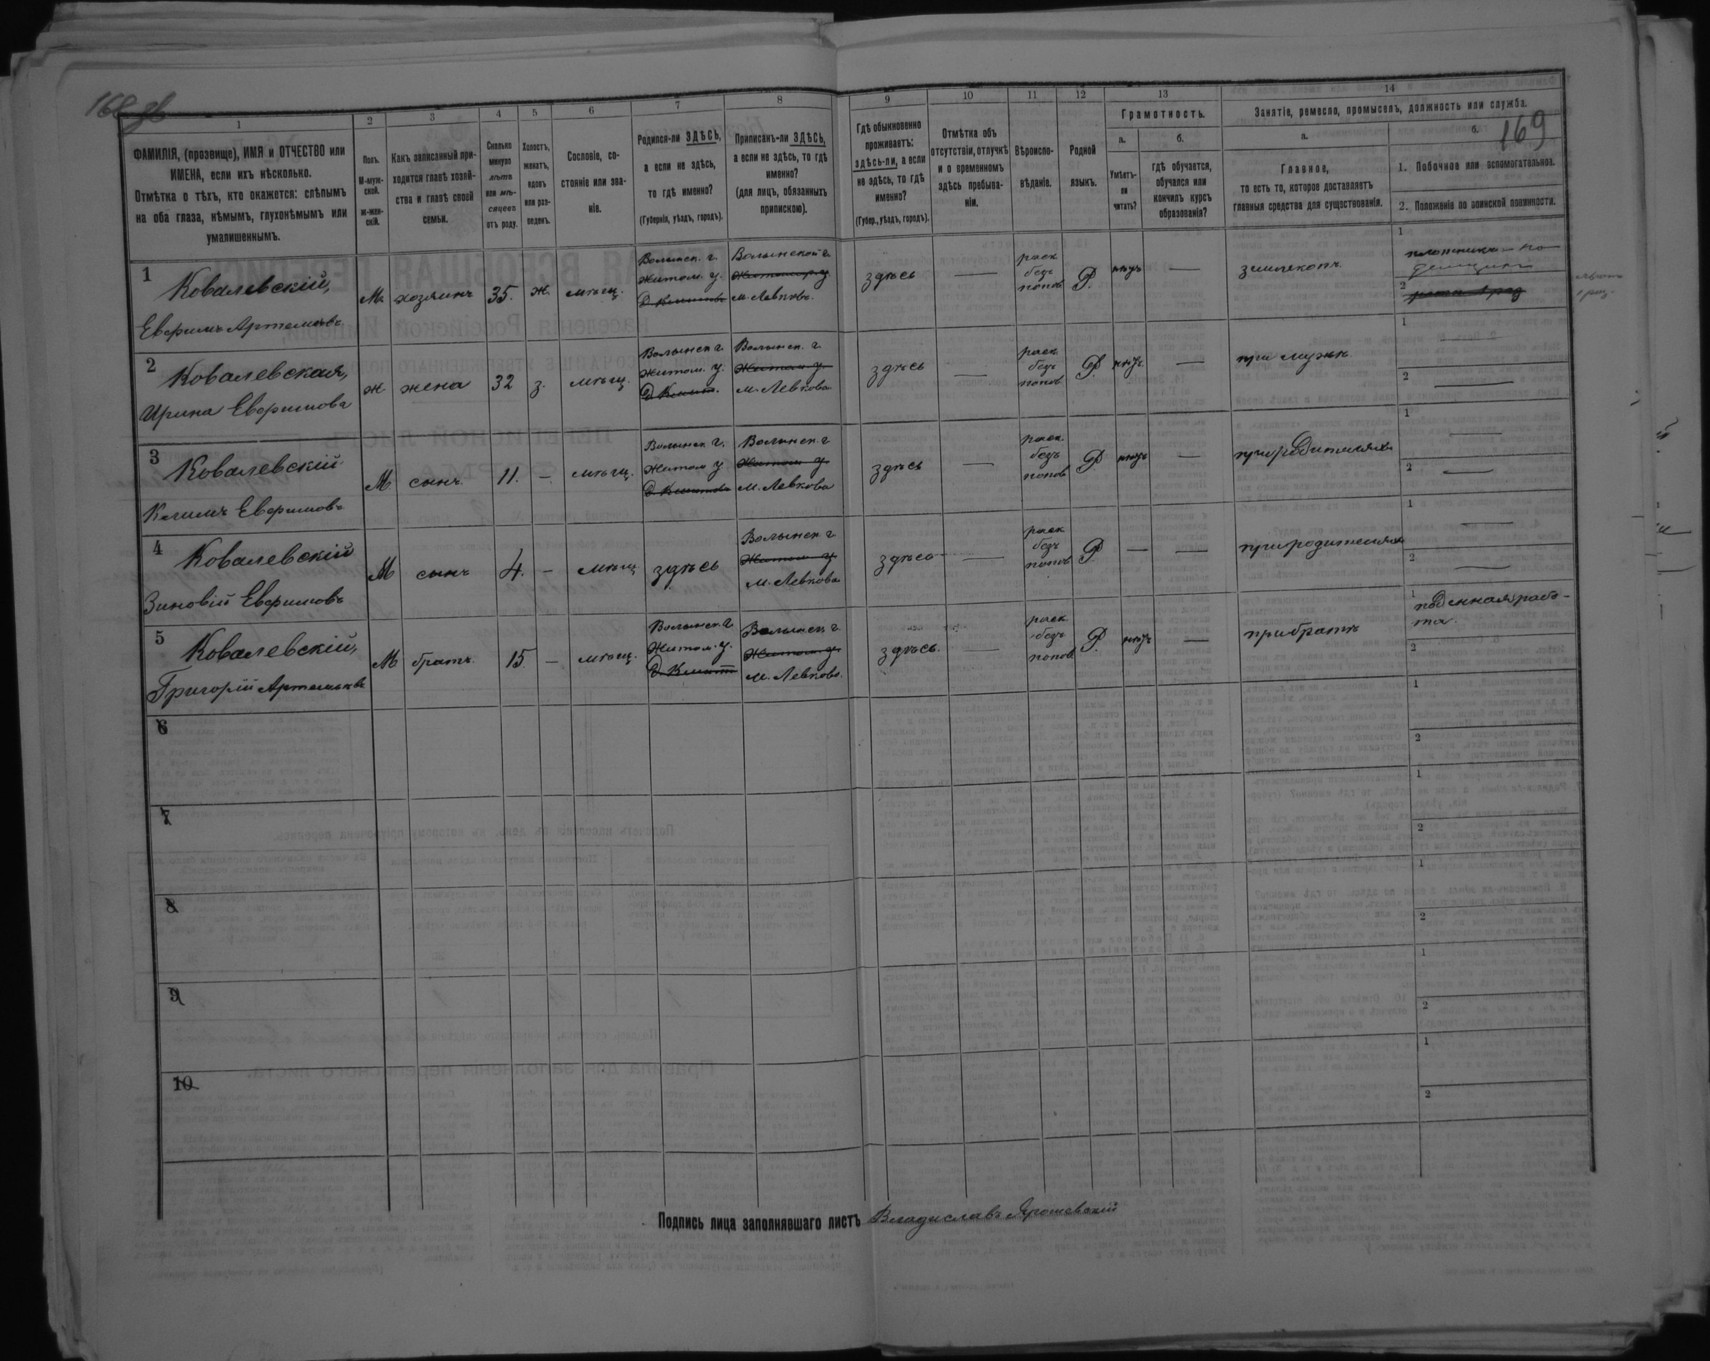 168 зв
169
1
2
3
4
5
6
7
8
9
10
11
12
13
14
ФАМИЛІЯ, (прозвище), ИМЯ и ОТЧЕСТВО или
ИМЕНА, если ихъ нѣсколько.
Отмѣтка о тѣхъ, кто окажется: слѣпымъ
на оба глаза, нѣмымъ, глухонѣмымъ или
умалишеннымъ.
Полъ.
М-муж-
ской.
ж-жен-
скій.
Какъ записанный при-
ходится главѣ хозяй-
ства и главѣ своей
семьи.
Сколько
минуло
лѣтъ
или мѣ-
сяцевъ
отъ роду.
Холостъ,
женатъ,
вдовъ
или раз-
веденъ.
Сословіе, со-
стояніе или зва-
ніе.
Родился-ли ЗДѢСЬ,
а если не здѣсь,
то гдѣ именно?
(Губернія, уѣздъ, городъ).
Приписанъ-ли ЗДѢСЬ,
а если не здѣсь, то гдѣ
именно?
(для лицъ, обязанныхъ
припискою).
Гдѣ обыкновенно
проживаетъ:
здѣсь-ли, а если
не здѣсь, то гдѣ
именно?
(Губер., уѣздъ, городъ).
Отмѣтка объ
отсутствіи, отлучкѣ
и о временномъ
здѣсь пребыва-
ніи.
Вѣроиспо-
вѣданіе.
Родной
языкъ.
Грамотность.
а.
Умѣетъ-
ли
читать?
б.
гдѣ обучается,
обучался или
кончилъ курсъ
образованія?
Занятіе, ремесло, промыселъ, должность или служба.
а.
Главное,
то есть то, которое доставляетъ
главныя средства для существованія.
б.
1. Побочное или вспомогательное.
2. Положеніе по воинской повинности.
1
Ковалевскій,
Евфимъ Артемьевъ
М.
хозяинъ
35.
ж.
мѣщ.
Волынск. г.
Житом. у.
Волынской г.
Житомир у
м. Левкова.
здѣсь
раск
безъ
попов
Р.
землекопъ
1
плотникъ по-
2
2
Ковалевская,
Ирина Евфимова
ж
жена
32
з.
мѣщ.
Волынск г.
Житом. у.
Волынск. г.
Житом у
м. Левкова
здѣсь
раск
безъ
попов
Р.
при мужѣ
1
2
3
Ковалевскій
Климъ Евфимовъ
М
сынъ.
11.
мѣщ.
Волынск г.
Житом у
Волынск. г
Житом у
м. Левкова
здѣсь
раск
безъ
попов
Р
при родителяхъ
1
2
4
Ковалевскій
Зиновій Евфимовъ
М
сынъ
4.
мѣщ
здѣсь
Волынск г
Житом у
м. Левкова
здѣсь
раск
безъ
попов
Р.
при родителяхъ
1
2
5
Ковалевскій,
Григорій Артемьевъ
М
братъ.
15
мѣщ.
Волынск. г
Житом. у.
Волынск г
Житом у.
м. Левкова.
здѣсь.
раск
безъ
попов
Р.
при братѣ
1
поденная рабо-
та.
2
6
1
2
7
1
2
8
1
2
9
1
2
10
1
2
Подпись лица заполнявшаго листъ Владиславъ Ярошевскій